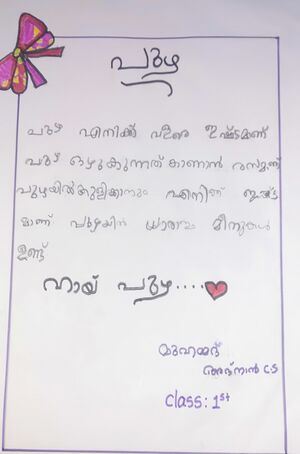 പുഴ
പുഴ എനിക്ക് വളരെ ഇഷ്ടമാണ്
പുഴ ഒഴുകുന്നത് കാണാൻ രസമാണ്
പുഴയിൽ കുളിക്കാനും എനിക്ക് ഇഷ്ട
മാണ് പുഴയിൽ ധാരാളം മീനുകൾ
ഉണ്ട്
ഹായ് പുഴ....
മുഹമ്മദ്
അദ്നാൻ C.S
Class: 1st